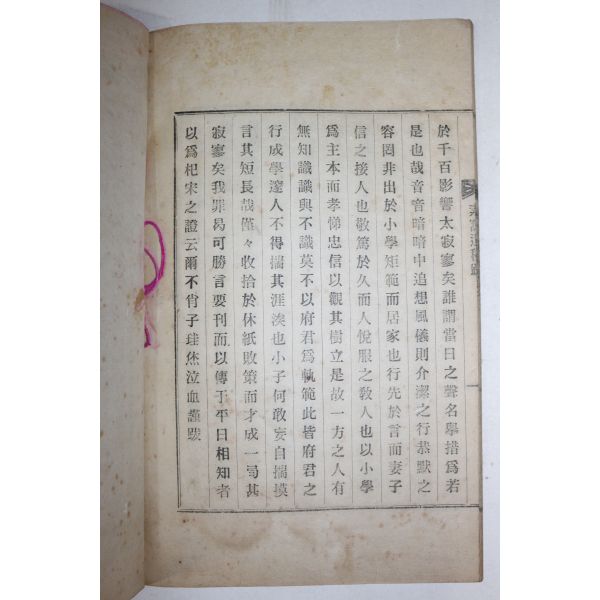 於千百影響太寂寥矣誰謂當日之聲名擧措爲若
是也哉音音暗暗中追想風儀則介潔之行恭默之
容罔非出於小學矩範而居家也行先於言而妻子
信之接人也敬篤於久而人悅服之敎人也以小學
爲主本而孝悌忠信以觀其樹立是故一方之人有
無知識識與不識莫不以府君爲軌範此皆府君之
行成學邃人不得揣其涯涘也小子何敢妄自揣摸
言其短長哉僅々收拾於休紙敗策而才成一局其
寂寥矣我罪曷可勝言要刊而以傳于平日相知者
以爲杞宋之證云爾不肖子珪烋泣血謹跋
遺稿跋
一